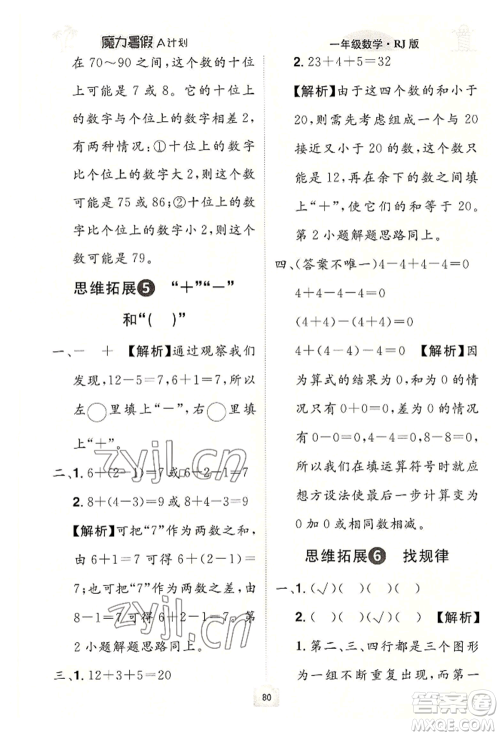 魔力暑假 A计划
一年级数学·RJ版
在 70～90 之间，这个数的十位上
的数字与个位上的数字相差 2，
有两种情况：①十位上的数字
比个位上的数字大 2，这个数
可能是 75 或 86；②十位上的数
字比个位上的数字小 2，这个
数可能是 79。
思维拓展5 “＋”“－”
和“( )”
一、－ ＋ 【解析】通过观察我们
发现，12－5＝7，6＋1＝7，所以
左○里应填上“－”，右○里
填上“＋”。
二、1. 6＋(2－1)＝7 6＋2－1＝7
2. 8＋(4－3)＝9 8＋4－3＝9
【解析】可把“7”作为两数之和，
6＋1＝7 可变为 6＋2－1＝7；
也可把“7”作为两数之差，
8－1＝7 可变为 6＋2－1＝7。第
2 小题解题思路同上。
三、1. 12＋3＋5＝20
2. 23＋4＋5＝32
【解析】由于这四个数的和小于
20，则需先考虑哪两个数与 20
接近又小于 20，首先把这两个
数合并，再在余下的数之间填
上“＋”，使它们的和等于 20。
第 2 小题解题思路同上。
四、(答案不唯一)4－4－4＋4＝0
4＋4－4－4＝0
4－(4＋4－4)＝0
(4＋4)－(4＋4)＝0 【解析】
因为算式的结果为 0，可根据
0－0＝0，4－4＝0，8－8＝0 等
情况，我们可以发现相同数相
减都等于 0，因为结果等于 0，
所以我们在填运算符号时，应
想方设法把算式变成最后是
两个相同数相减。
思维拓展6 找规律
一、1. (√)( )( )(√) 【解析】
第一、第二、第四行都是三个图形
为一组不断重复出现，而第一
80
zyjl.cn
zyjl.cn
答案圈